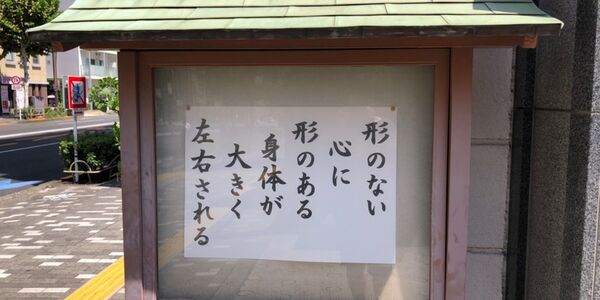 形のない
心に
形のある
身体が
大きく
左右される